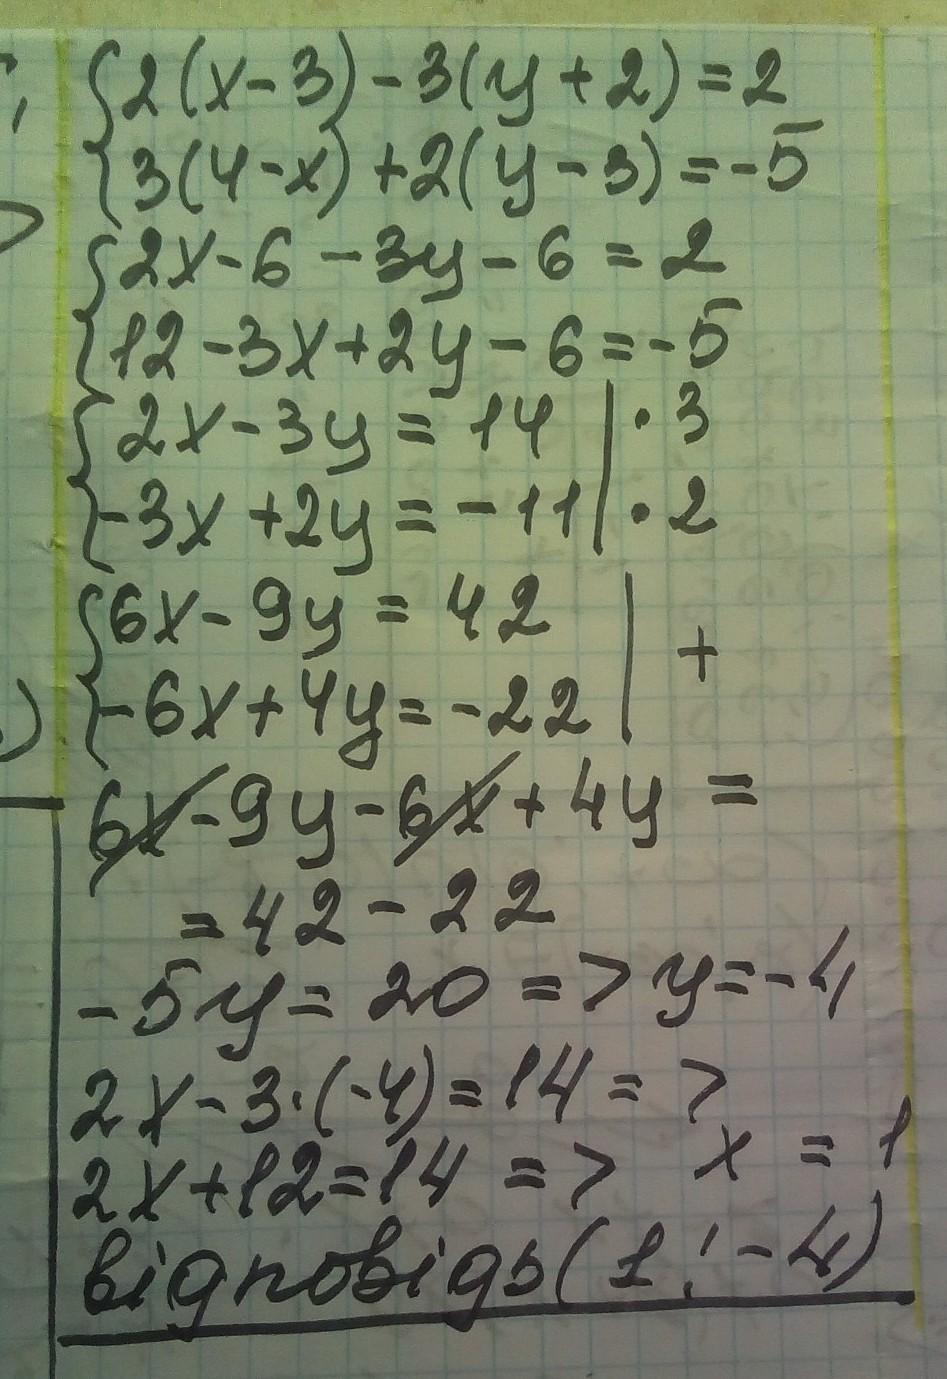 2(x-3)-3(y+2)=2
3(4-x)+2(y-3)=-5
2x-6-3y-6=2
12-3x+2y-6=-5
2x-3y=14 | ·3
-3x+2y=-11 | ·2
6x-9y=42 | +
-6x+4y=-22
6x-9y-6x+4y=
=42-22
-5y=20=>y=-4
2x-3·(-4)=14=>
2x+12=14=> x=1
відповідь(1;-4)